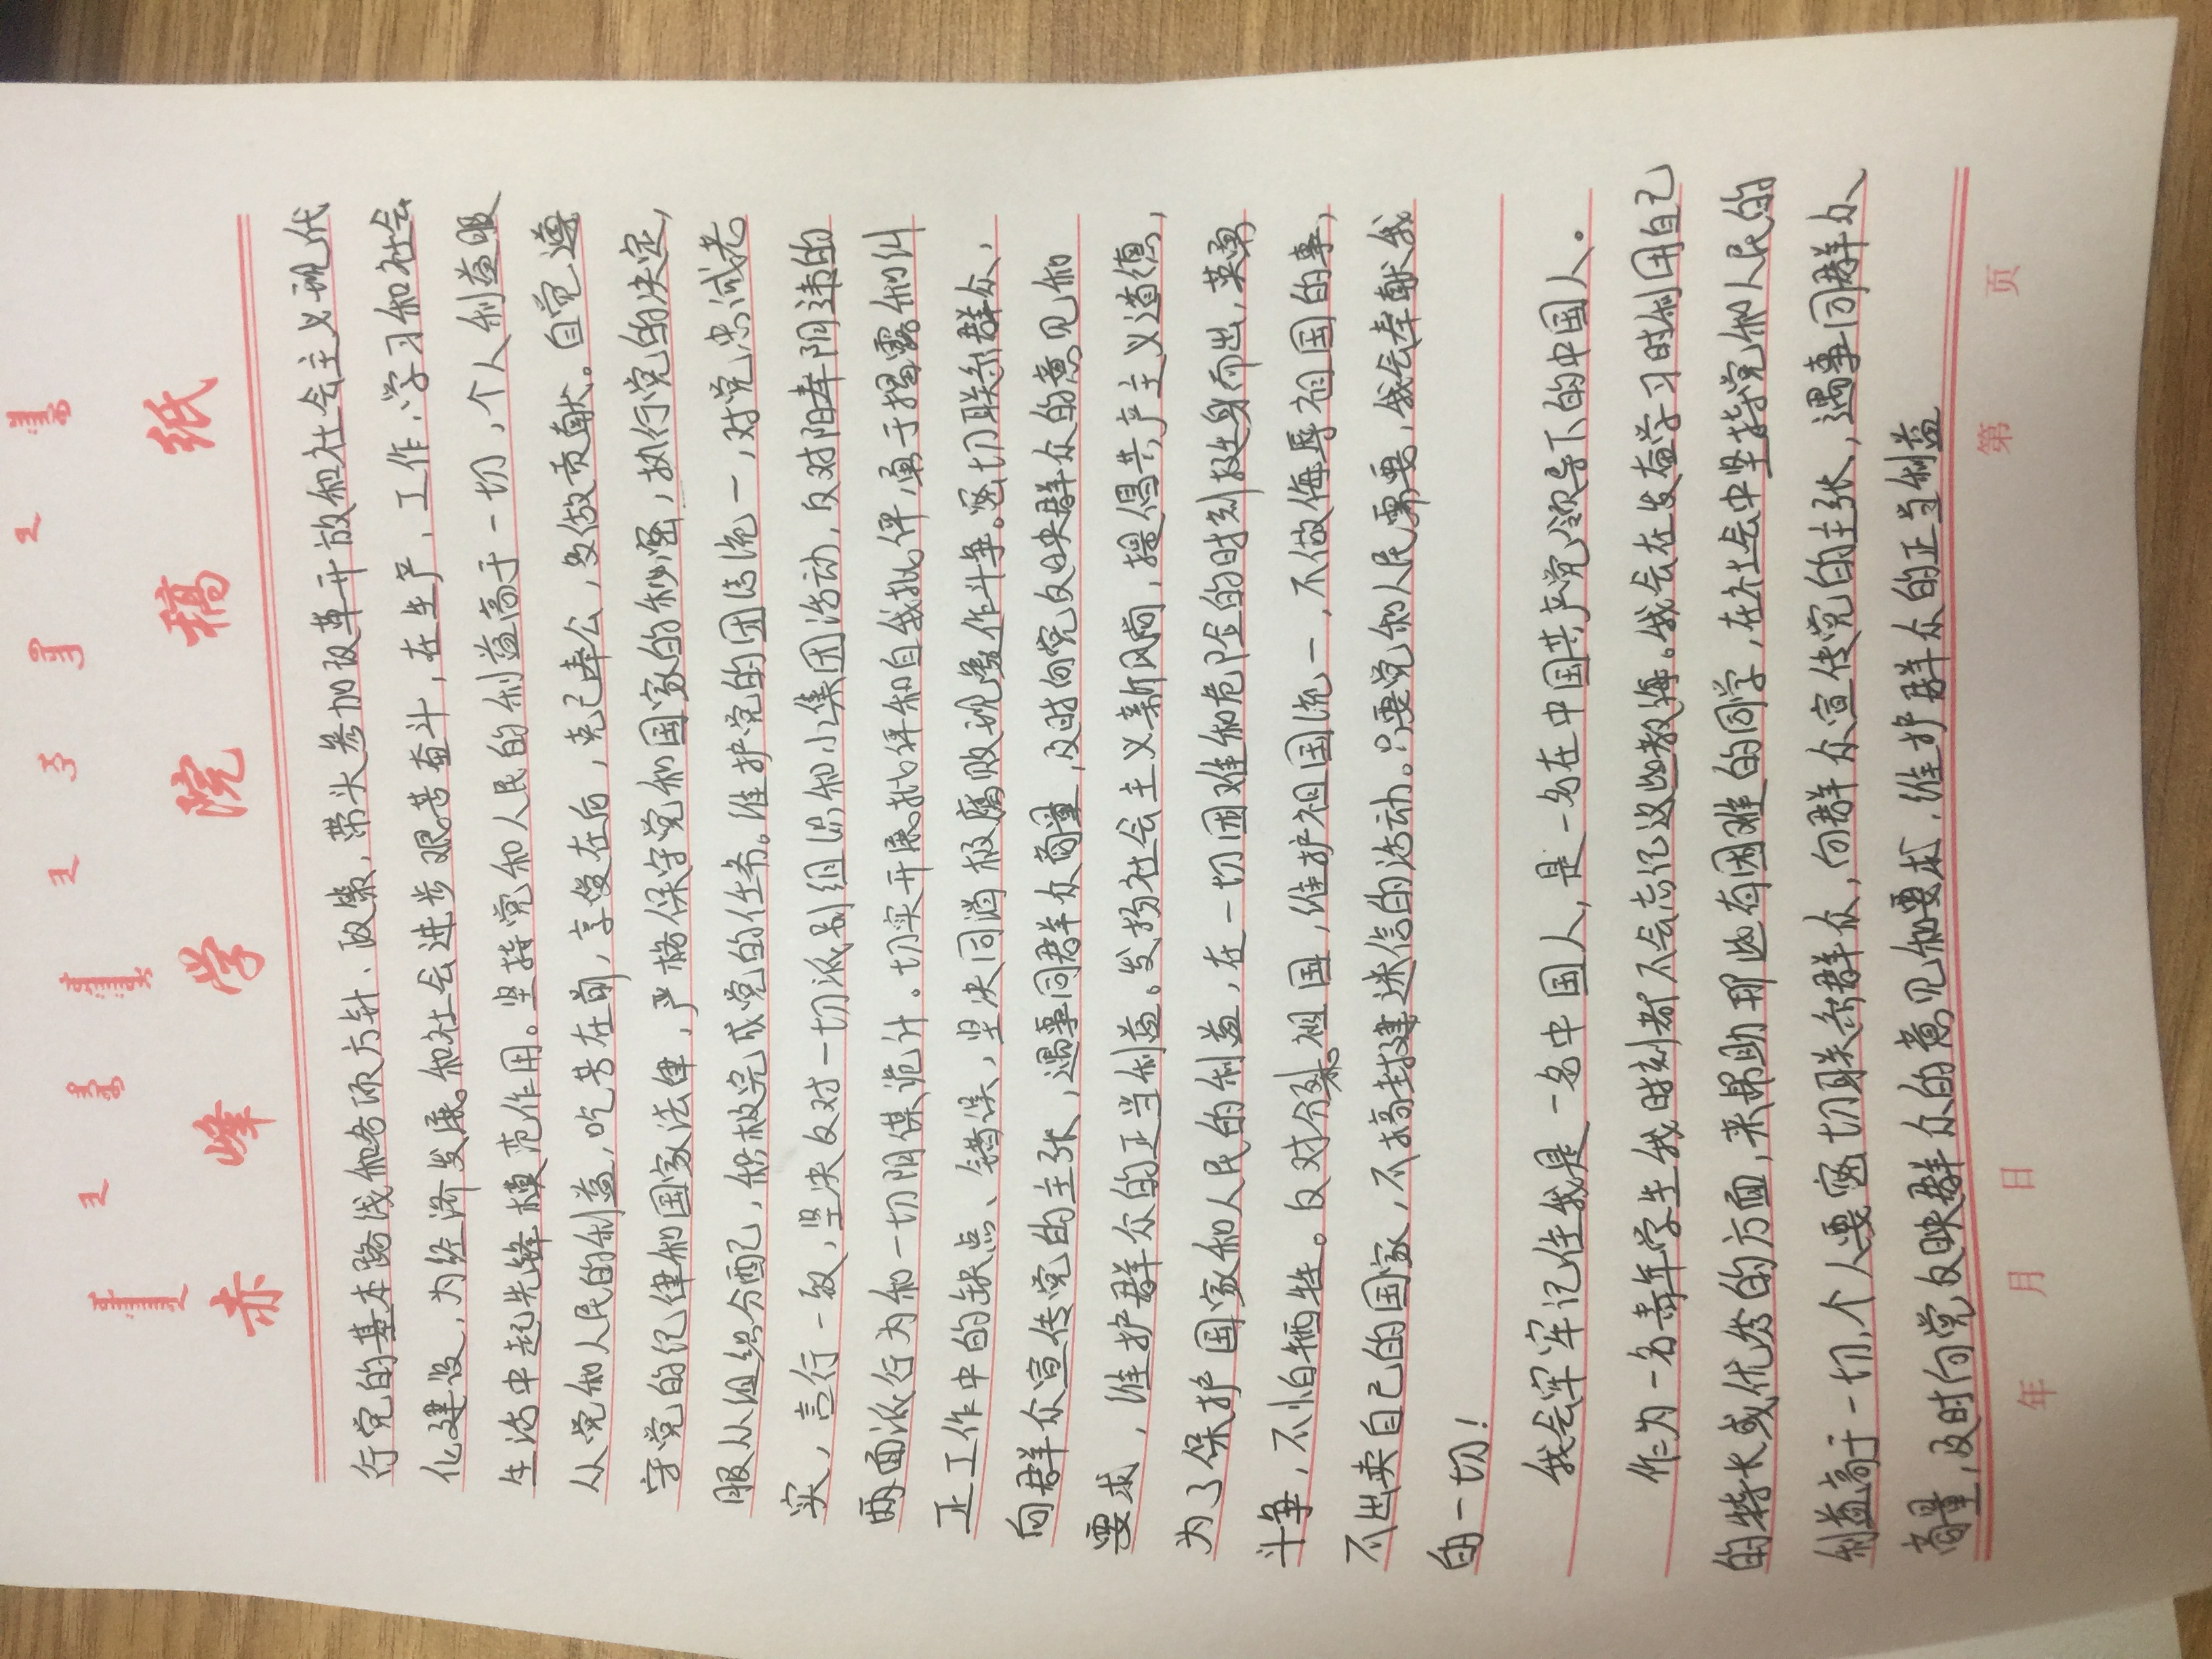 赤峰学院稿纸
行党的基本路线和各项方针、政策,带头参加改革开放和社会主义现代
化建设,为经济发展和社会进步艰苦奋斗,在生产,工作,学习和社会
生活中起先锋模范作用。坚持党和人民的利益高于一切,个人利益服
从党和人民的利益,吃苦在前,享受在后,克己奉公,多做贡献。自觉遵
守党的纪律和国家法律,严格保守党和国家的秘密,执行党的决定,
服从组织分配,积极完成党的任务。维护党的团结统一,对党忠诚老
实,言行一致,坚决反对一切派别组识和小集团活动,反对阳奉阴违的
两面派行为和一切阴谋诡计。切实开展批评和自我批评,勇于揭露和纠
正工作中的缺点、错误,坚决同消极腐败现象作斗争。密切联系群众,
向群众宣传党的主张,遇事同群众商量,及时向党反映群众的意见和
要求,维护群众的正当利益。发扬社会主义新风尚,提倡共产主义道德,
为了保护国家和人民的利益,在一切困难和危险的时刻挺身而出,英勇
斗争,不怕牺牲。反对分裂祖国,维护祖国统一,不做侮辱祖国的事,
不出卖自己的国家,不搞封建迷信的活动。只要党和人民需要,我会奉献我
的一切!
我会牢牢记住我是一名中国人,是一名在中国共产党领导下的中国人。
作为一名青年学生我时刻都不会忘记这些教诲。我会在发奋学习时利用自己
的特长或优秀的方面,来帮助那些有困难的同学,在社会中坚持党和人民的
利益高于一切,个人要密切联系群众,向群众宣传党的主张,遇事同群众
商量,及时向党反映群众的意见和要求,维护群众的正当利益
年 月 日 第 页